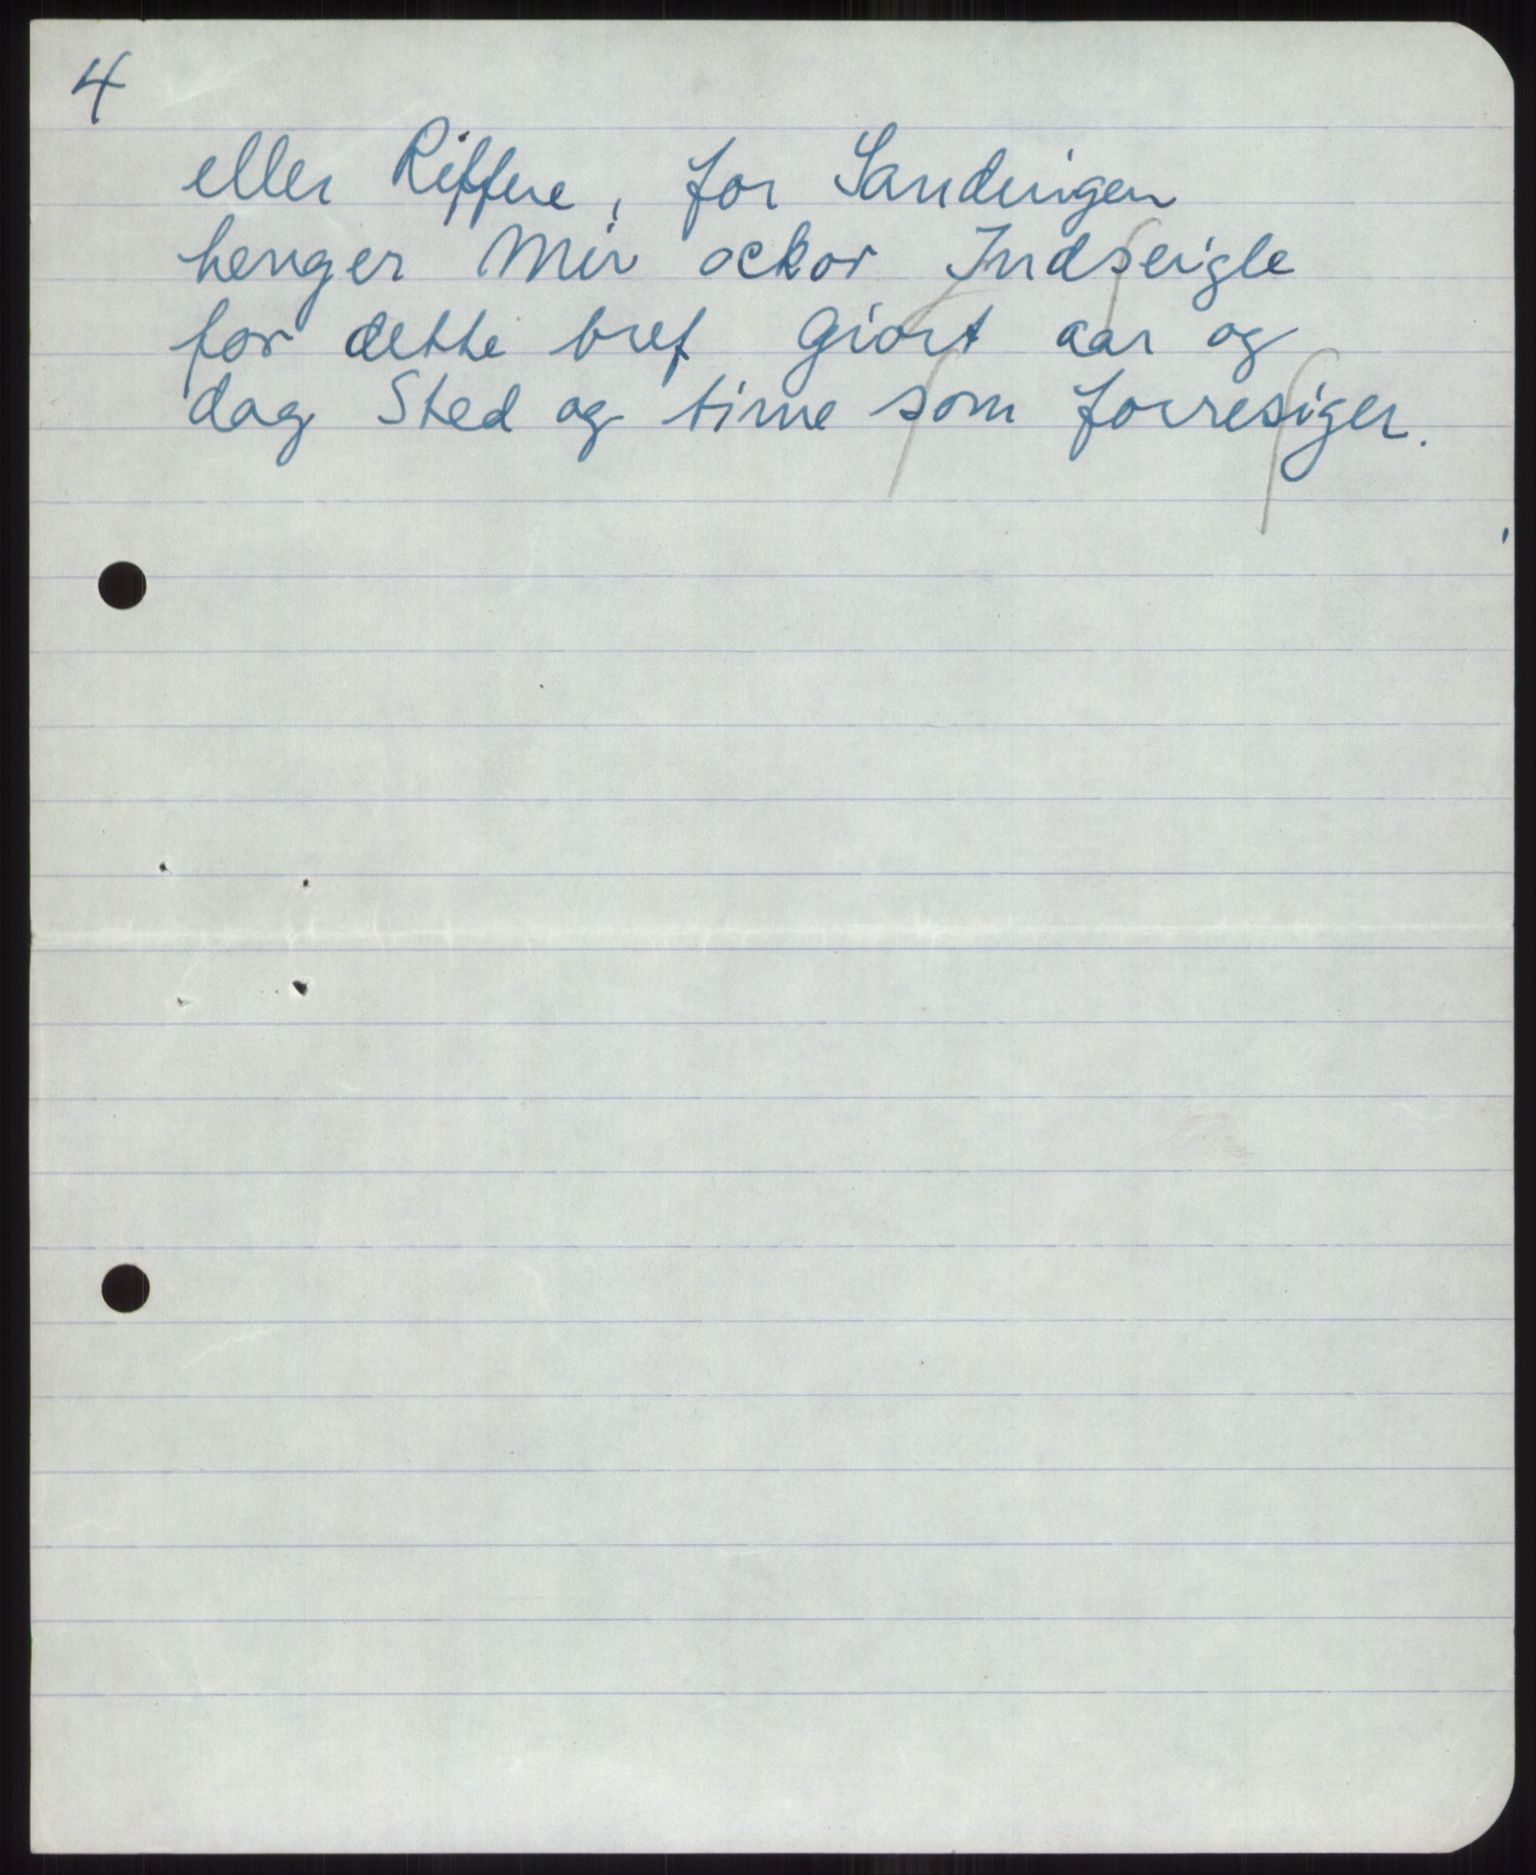 4
eller Riffere, for Sandingen
henger Min ockor Indseigle
for dette bref Giort aar og
dag Sted og time som forresiger.